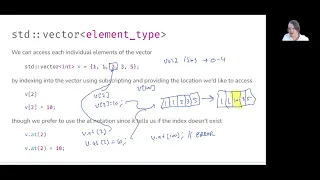 std::vector<element_type>
We can access each individual elements of the vector
std::vector<int> v = {1, 1, 2, 3, 5};
by indexing into the vector using subscripting and providing the location we'd like to access
v[2]
v[2] = 10;
though we prefer to use the at notation since it tells us if the index doesn't exist
v.at(2)
v.at(2) = 10;
→ 0-4
v[2]
v[2] = 10;
v[100]
1 1 2 3 5
v.at(2)
v.at(2) = 10;
v.at(100) // ERROR